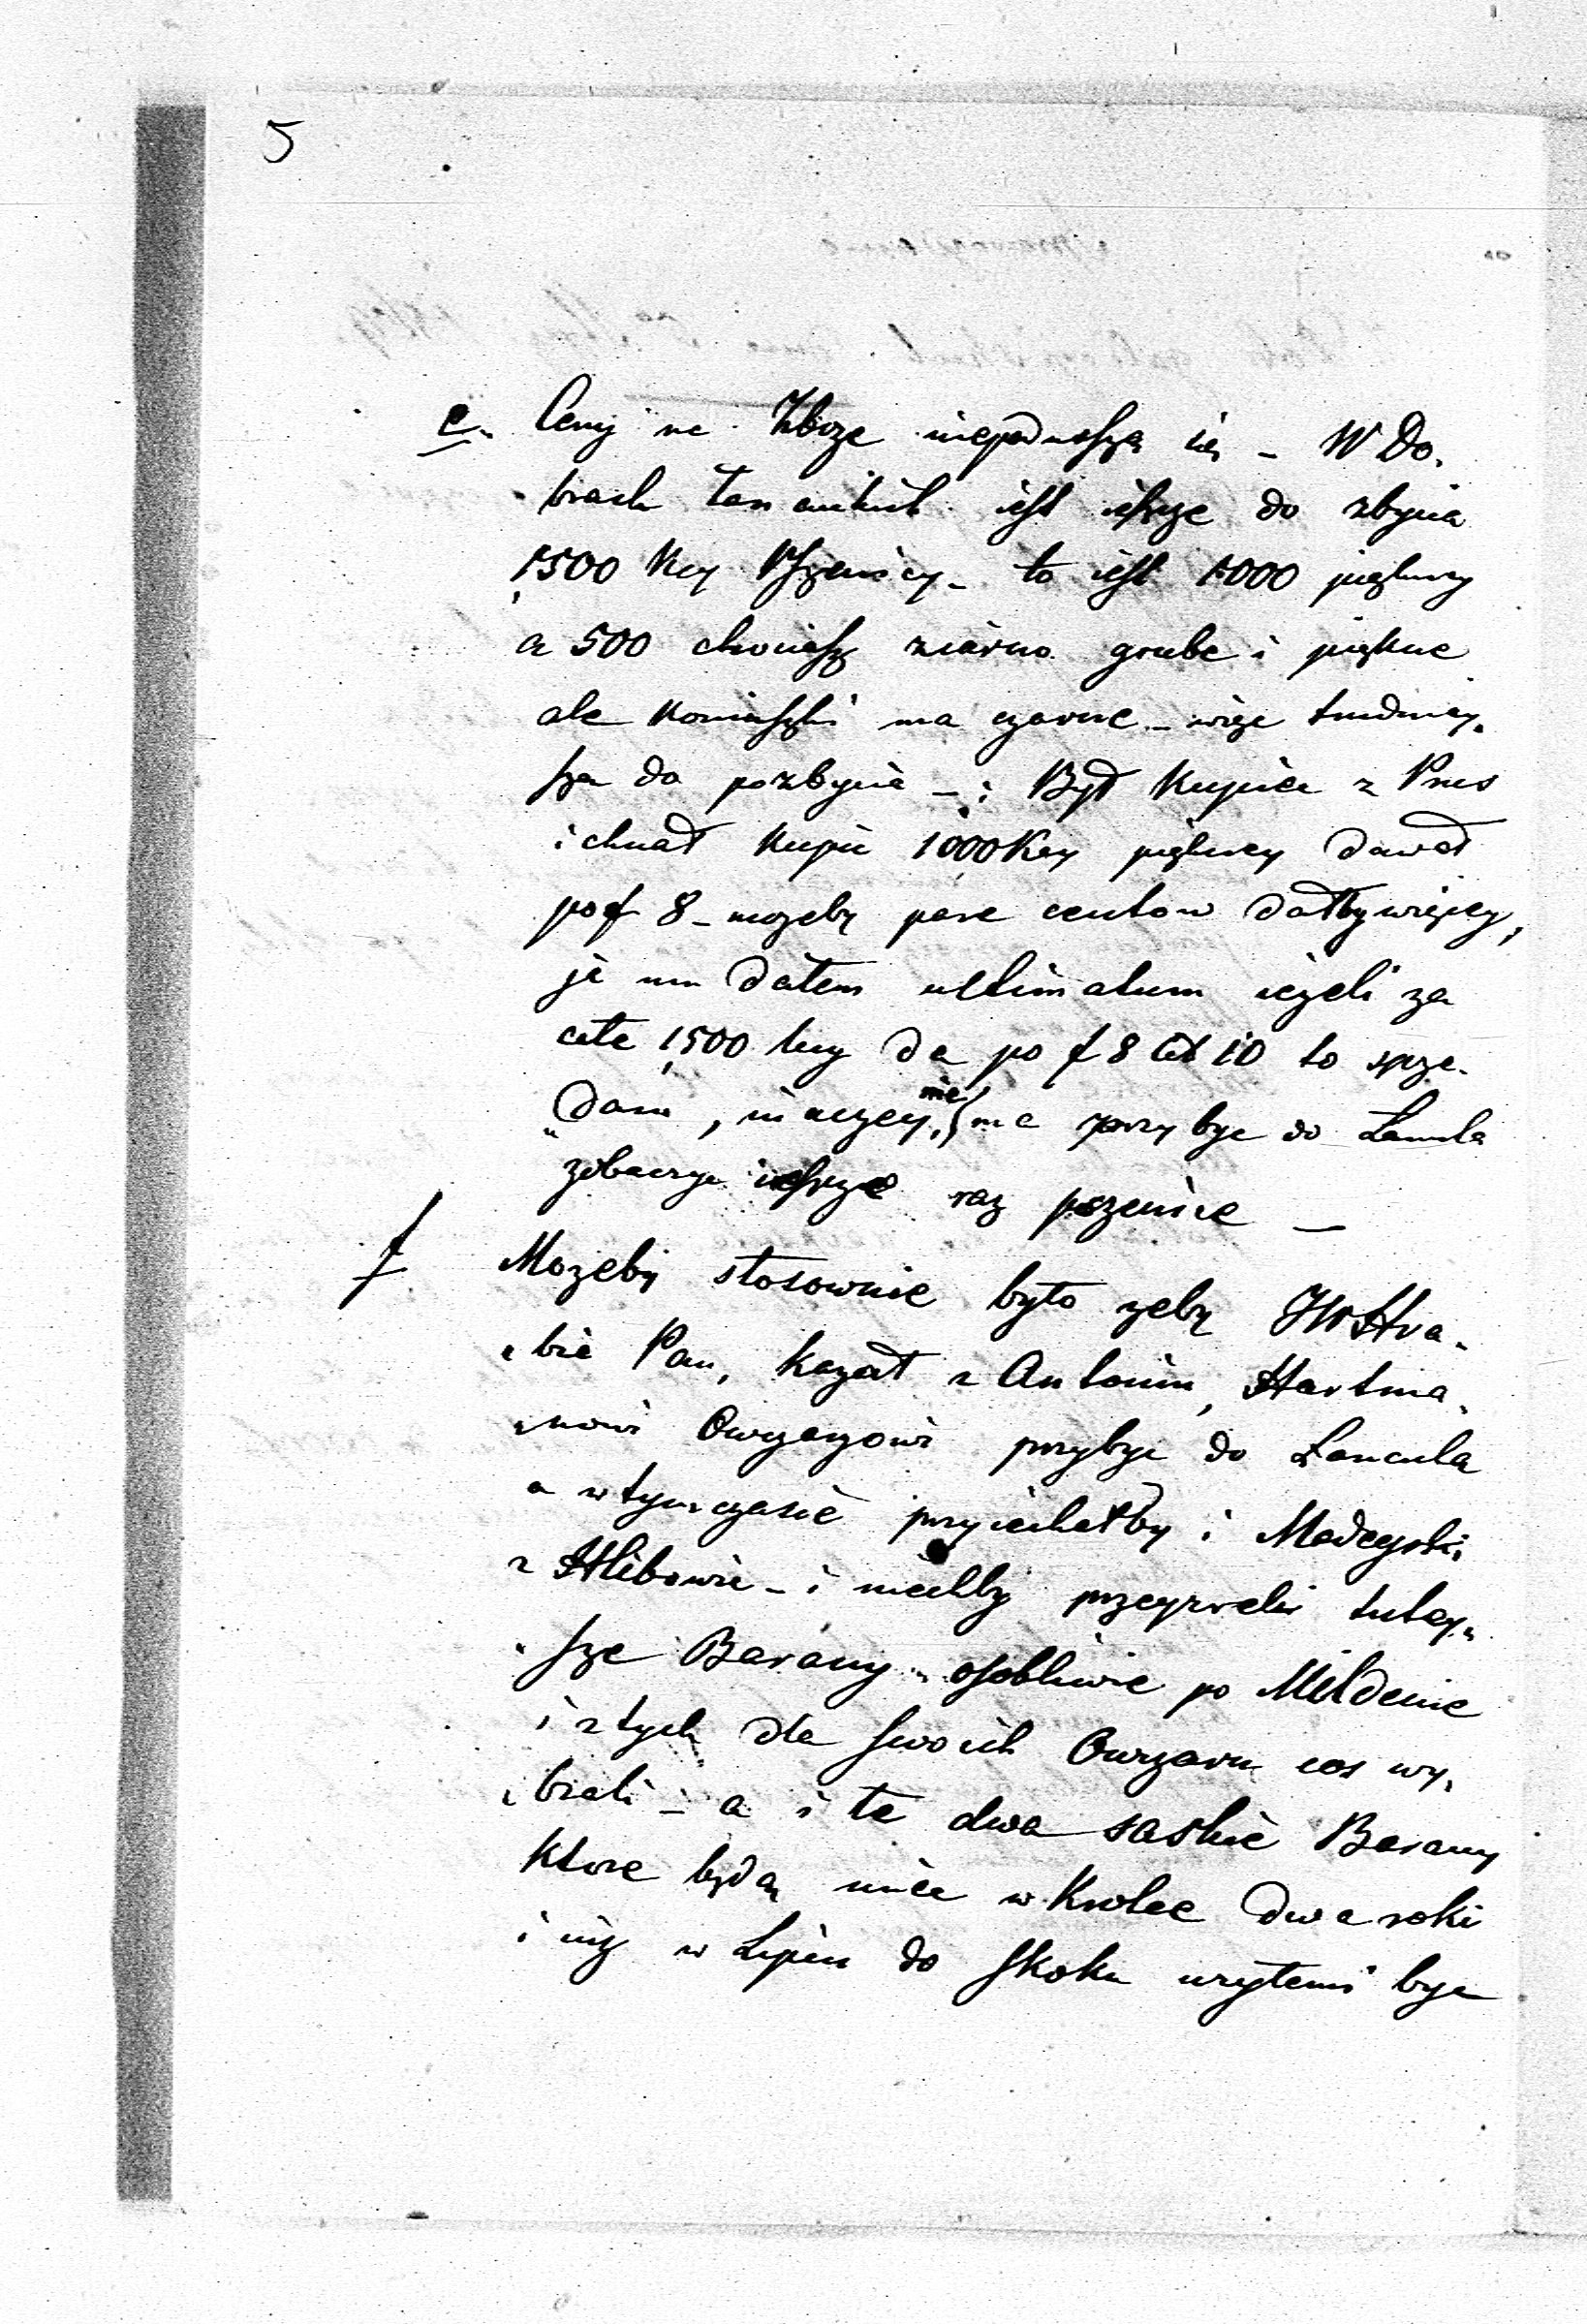 5
e. Ceny na Zboze niepodnoszą się – W Do„
„brach Łancuckich iest ieszcze do zbycia
1,500 Kcy Pszenicy – to iest 1000 piękney
a 500 chociasz ziarno grube i piękne
ale koniuszki ma czarne – więc trudniey„
sza do pozbycia – : Był Kupiec z Prus
i chciał kupić 1,000 Kcy piękney dawał
po f 8 – mozeby pare centow dałby więcey,
ja mu dałem ultimatum iezeli za
całe 1,500 kcy da po f 8 Ct 10 to sprze„
„dam, inaczey nie, ma przybyc do Łancuta
zobaczyc ieszcze raz pszenice –
f Mozeby stosownie było zeby JW Hra„
„bia Pan, kazał z Antonin, Hartma„
„nowi Owczarzowi przybyc do Łancuta
a w tym czasie przyiechałby i Madeyski
z Hlibowa – i niechby przeyrzeli tutey„
„sze Barany – osobliwie po Mildenie
i z tych dla swoich Owczarn cos wy„
„brali – a i te dwa saskie Barany
ktore będą miec w Krotce dwa roki
i iuz w Lipcu do skoku uzytemi byc